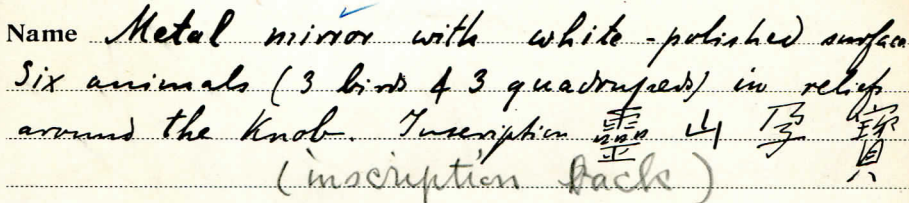 Name Metal mirror with white-polished surface
Six animals (3 birds & 3 quadrupeds) in relief
around the Knob. Inscription 靈山孕寶
(inscription back)